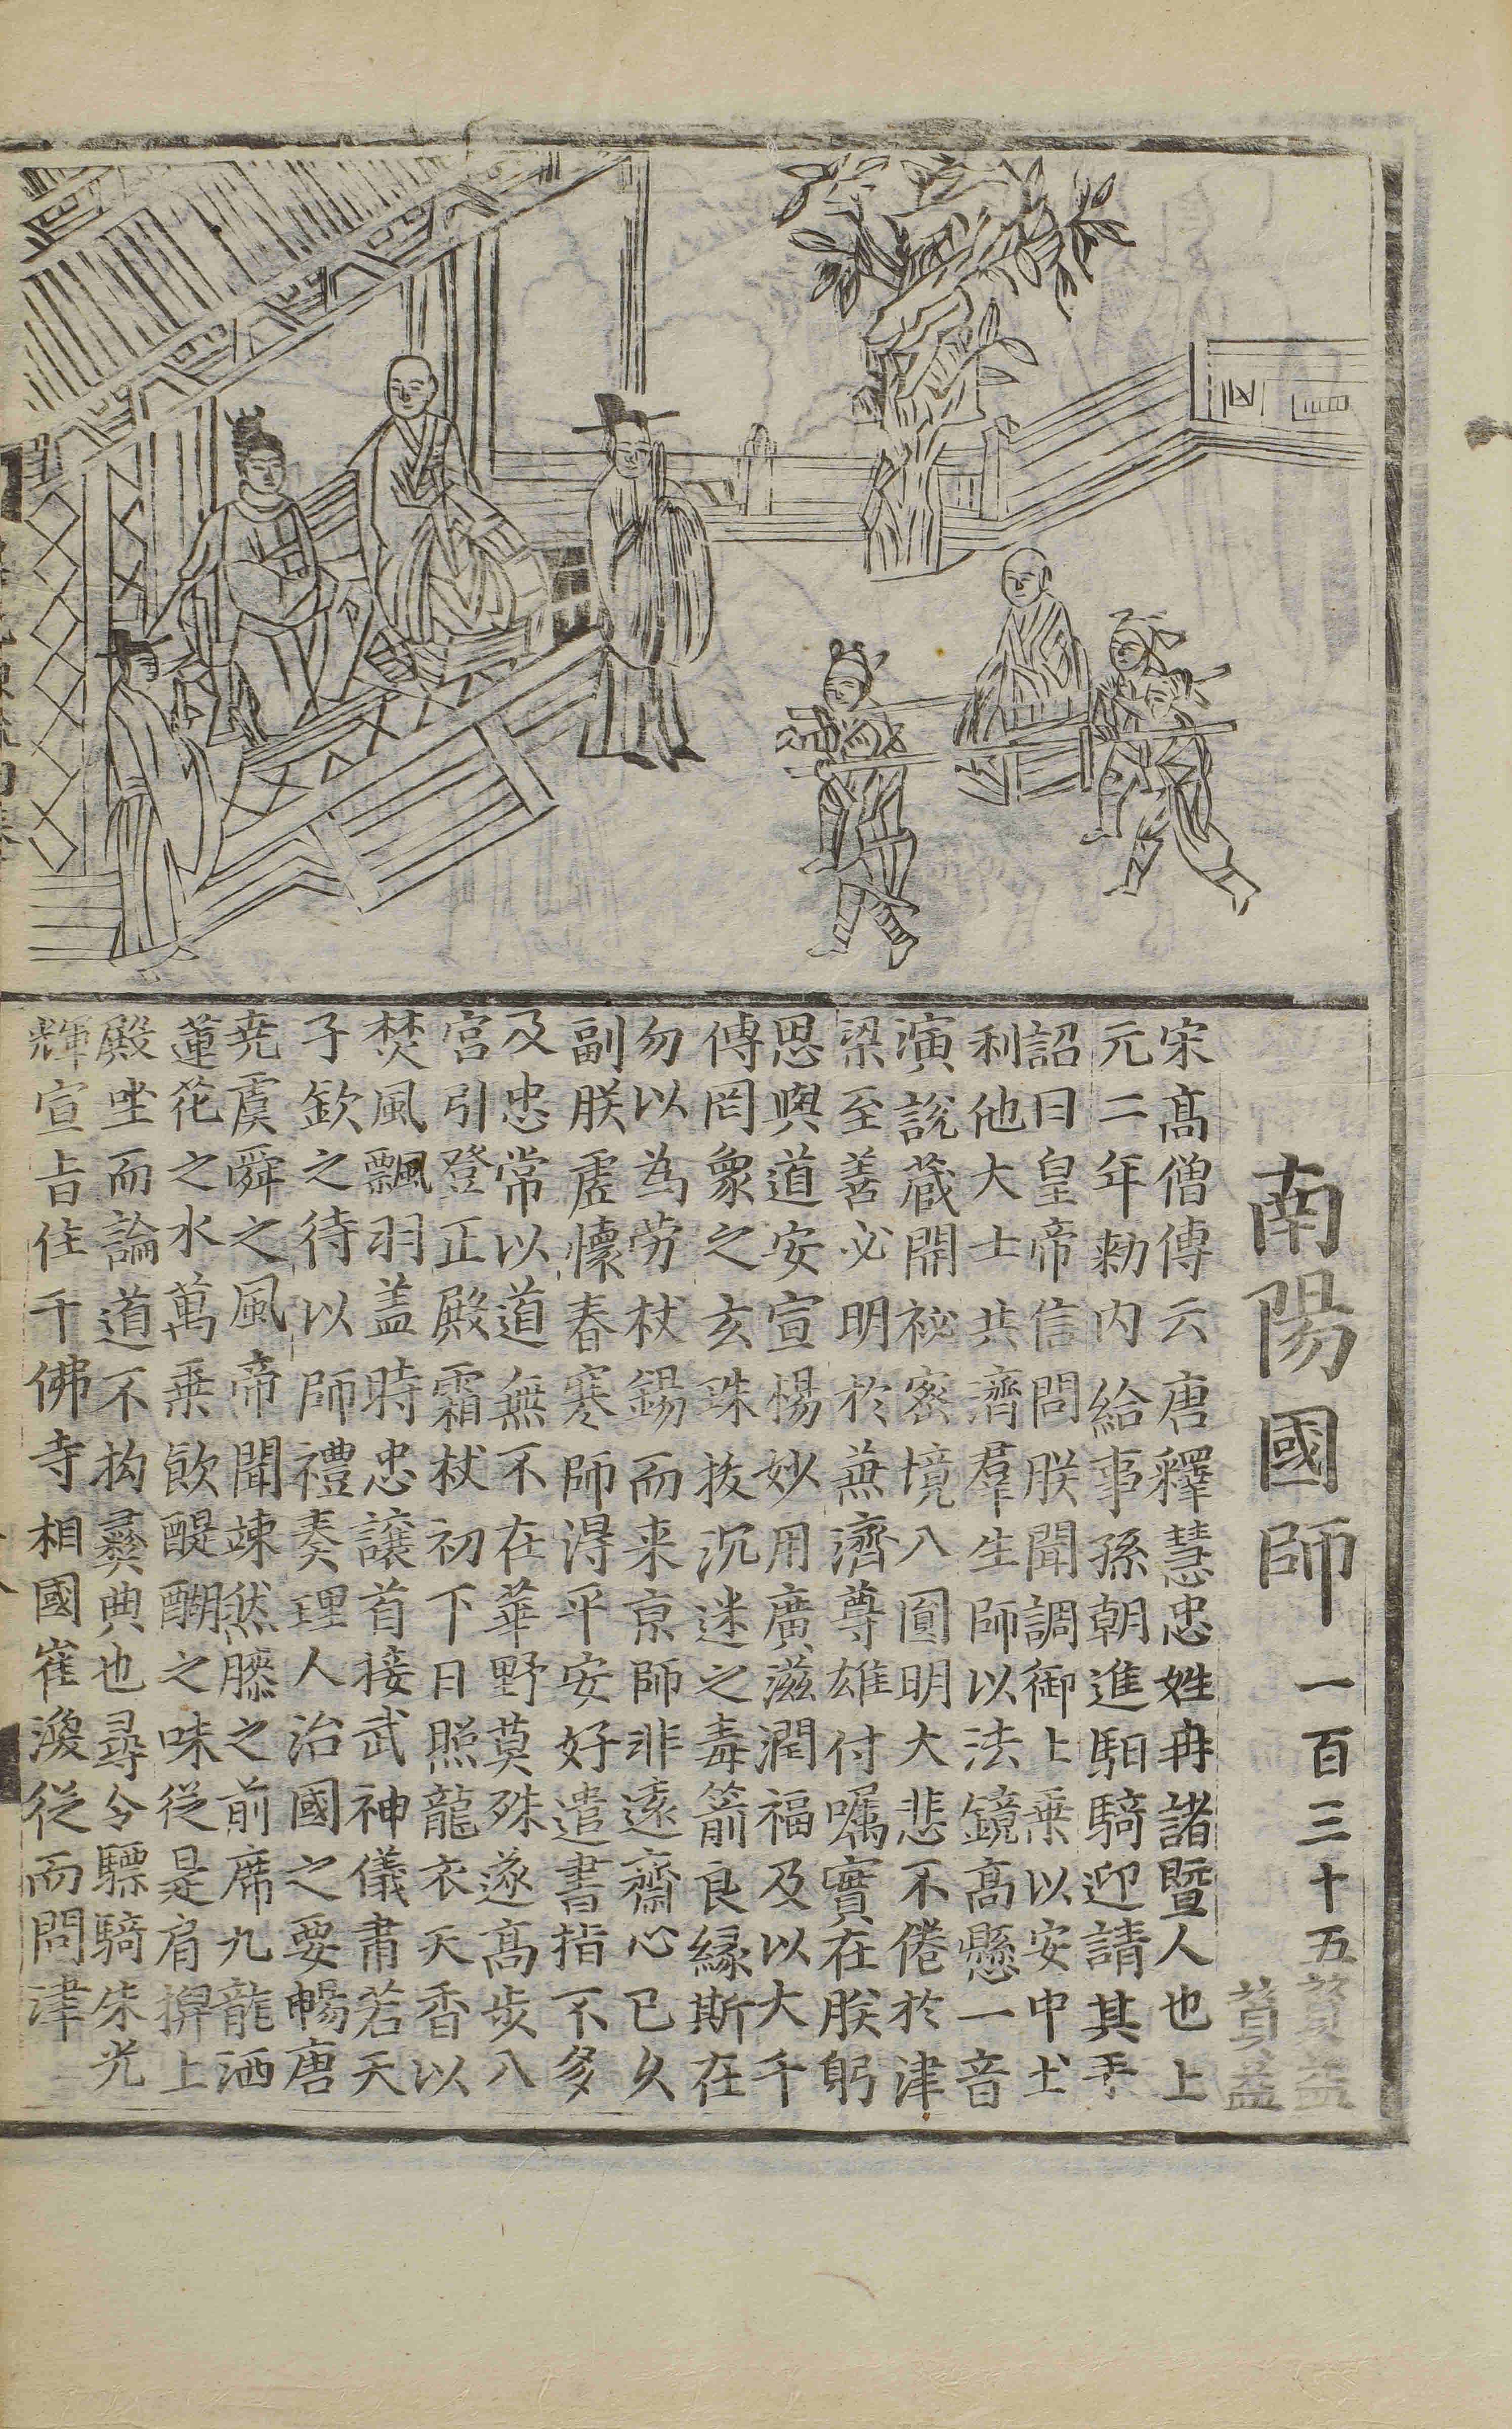 南陽國師 一百三十五
宋髙僧傳云唐釋慧忠姓冉諸暨人也上
元二年勑内給事孫朝進馹騎迎請其手
詔曰皇帝信問朕聞調御上乗以安中土
利他大士共濟羣生師以法鏡髙懸一音
演說蔵開祕宻境八圓明大悲不倦於津
梁至善必明於兼濟尊雄付囑實在朕躬
思與道安宣楊妙用廣滋潤福及以大千
傳罔象之玄珠抜沉迷之毒箭良縁斯在
勿以為勞杖錫而来京師非遥齋心已久
副朕虚懷春寒師得平安好遣書指不多
及忠常以道無不在華野莫殊遂髙歩八
宫引登正殿霜杖初下日照龍衣天香以
焚風飄羽盖時忠譲首接武神儀肅若天
子欽之待以師禮奏理人治國之要暢唐
尭虞舜之風帝聞竦然膝之前席九龍洒
蓮花之水萬乗飲醍醐之味從是肩搿上
殿坐而論道不拘彞典也尋令驃騎朱光
輝宣旨住千佛寺相國崔渙從而問津